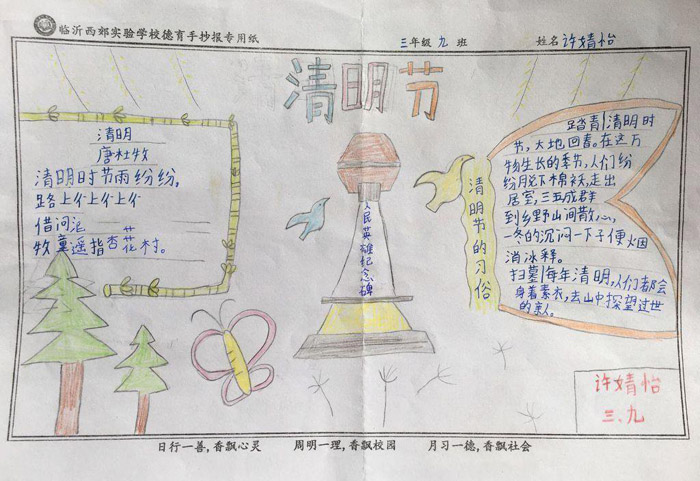 临沂西郊实验学校德育手抄报专用纸
三年级 九 班
姓名 许婧怡
清明节
清明
唐杜牧
清明时节雨纷纷，
路上个上个上个
借问
牧童遥指杏花村。
人民英雄纪念碑
清明节的习俗
踏青|清明时
节，大地回春。在这万
物生长的季节，人们纷
纷脱下棉袄，走出
居室，三五成群
到乡野山间散心，
一冬的沉闷一下子便烟
消冰释。
扫墓|每年清明，人们都会
身着素衣，去山中探望过世
的亲人。
许婧怡
三、九
日行一善，香飘心灵 周明一理，香飘校园 月习一德，香飘社会